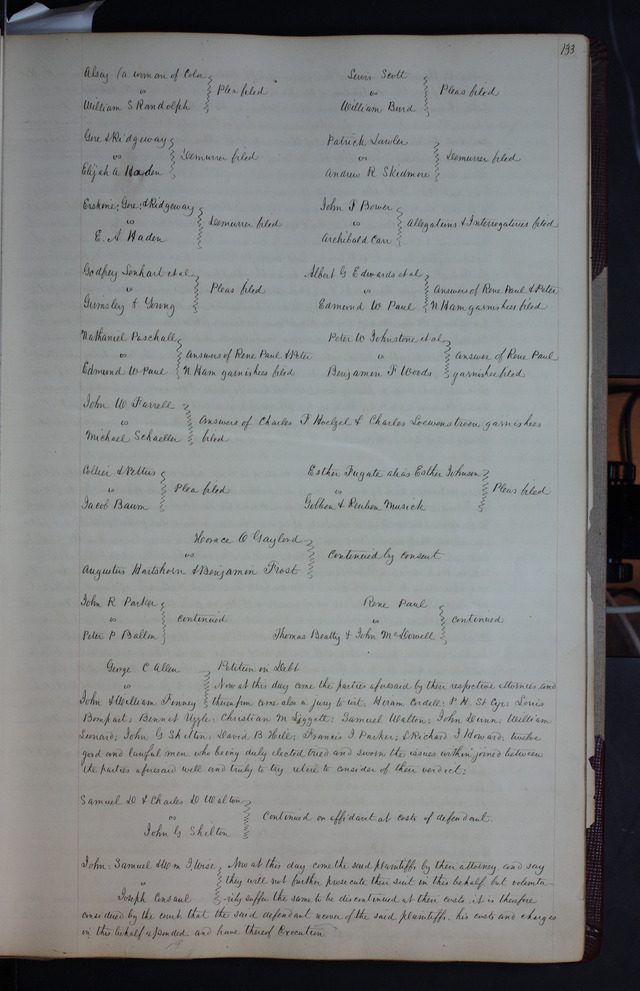 133
Alsey (a woman of Color
vs
William S Randolph
Plea filed
Lewis Scott
vs
William Burd
Pleas filed
Gore & Ridgeway
vs
Elijah A Haden
Demurrer filed
Patrick Lawler
vs
Andrew R Skidmore
Demurrer filed
Erskine, Gore, & Ridgeway
vs
E. A Haden
Demurrer filed
John F Bower
vs
Archibald Carr
Allegations & Interrogatories filed
Godfrey Lenhart et al
vs
Grimsley & Young
Pleas filed
Albert G Edwards et al
vs
Edmund W Paul
Answers of Rene Paul & Peter
N Ham garnishees filed
Nathaniel Paschall
vs
Edmund W Paul
Answers of Rene Paul & Peter
N Ham garnishees filed
Peter W Johnstone et al
vs
Benjamin F Woods
Answer of Rene Paul
garnishee filed
John W Farrell
vs
Michael Schaeller
Answers of Charles F Hoelzel & Charles garnishees
filed
Collier & Pettus
vs
Jacob Baum
Plea filed
Esther Fugate alias Esther Johnson
vs
& Reuben Musick
Pleas filed
Horace O Gaylord
vs
Augustus Hartshorn & Benjamin Frost
Continued by consent
John R Parker
vs
Peter P Dalton
continued
Rene Paul
vs
Thomas Beatty & John McDowell
continued
George C Allen
vs
John & William Finney
Petition in Debt
Now at this day come the parties aforesaid by their respective attornies and
thereupon come also a jury to wit, Hiram Cordell; P. H. St Cyr; Louis
Bompart; Bennet Uzzle; Christian M Liggett; Samuel Walton; John Dunn; William
Leonard; John G Shelton; David B Hill; Francis J Parker; & Richard J Howard; twelve
good and lawful men, who being duly elected tried and sworn the issues within joined between
the parties aforesaid well and truly to try retire to consider of their verdict;
Samuel D & Charles D Walton
vs
John G Shelton
Continued on affidavit at costs of defendant.
John, Samuel & Wm J, Wise
vs
Joseph Consaul
Now at this day come the said plaintiffs by their attorney, and say
they will not further prosecute their suit in this behalf but volunta-
rily suffer the same to be discontinued at their costs, it is therefore
considered by the court that the said defendant recover of the said plaintiffs, his costs and charges
in this behalf expended and have thereof Execution